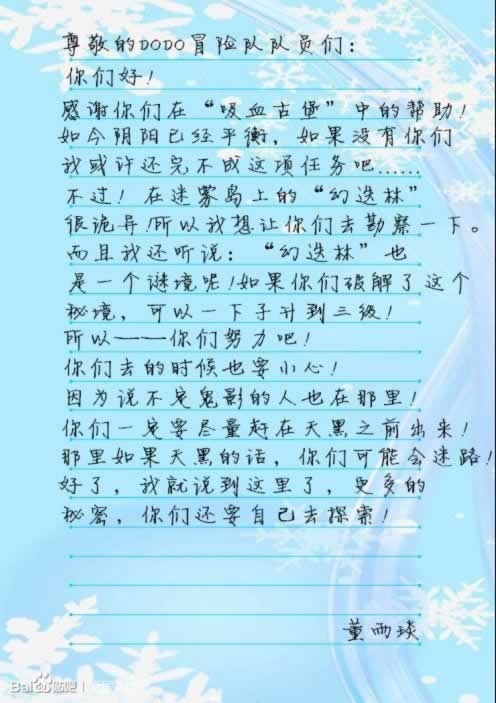 尊敬的DODO冒险队队员们：
你们好！
感谢你们在“吸血古堡”中的帮助！
如今阴阳已经平衡，如果没有你们
我或许还完不成这项任务吧……
不过！在迷雾岛上的“幻迭林”
很诡异！所以我想让你们去勘察一下。
而且我还听说：“幻迭林”也
是一个谜境呢！如果你们破解了这个
秘境，可以一下子升到三级！
所以——你们努力吧！
你们去的时候也要小心！
因为说不定鬼影的人也在那里！
你们一定要尽量赶在天黑之前出来！
那里如果天黑的话，你们可能会迷路！
好了，我就说到这里了，更多的
秘密，你们还要自己去探索！
董雨琰
Baidu贴吧